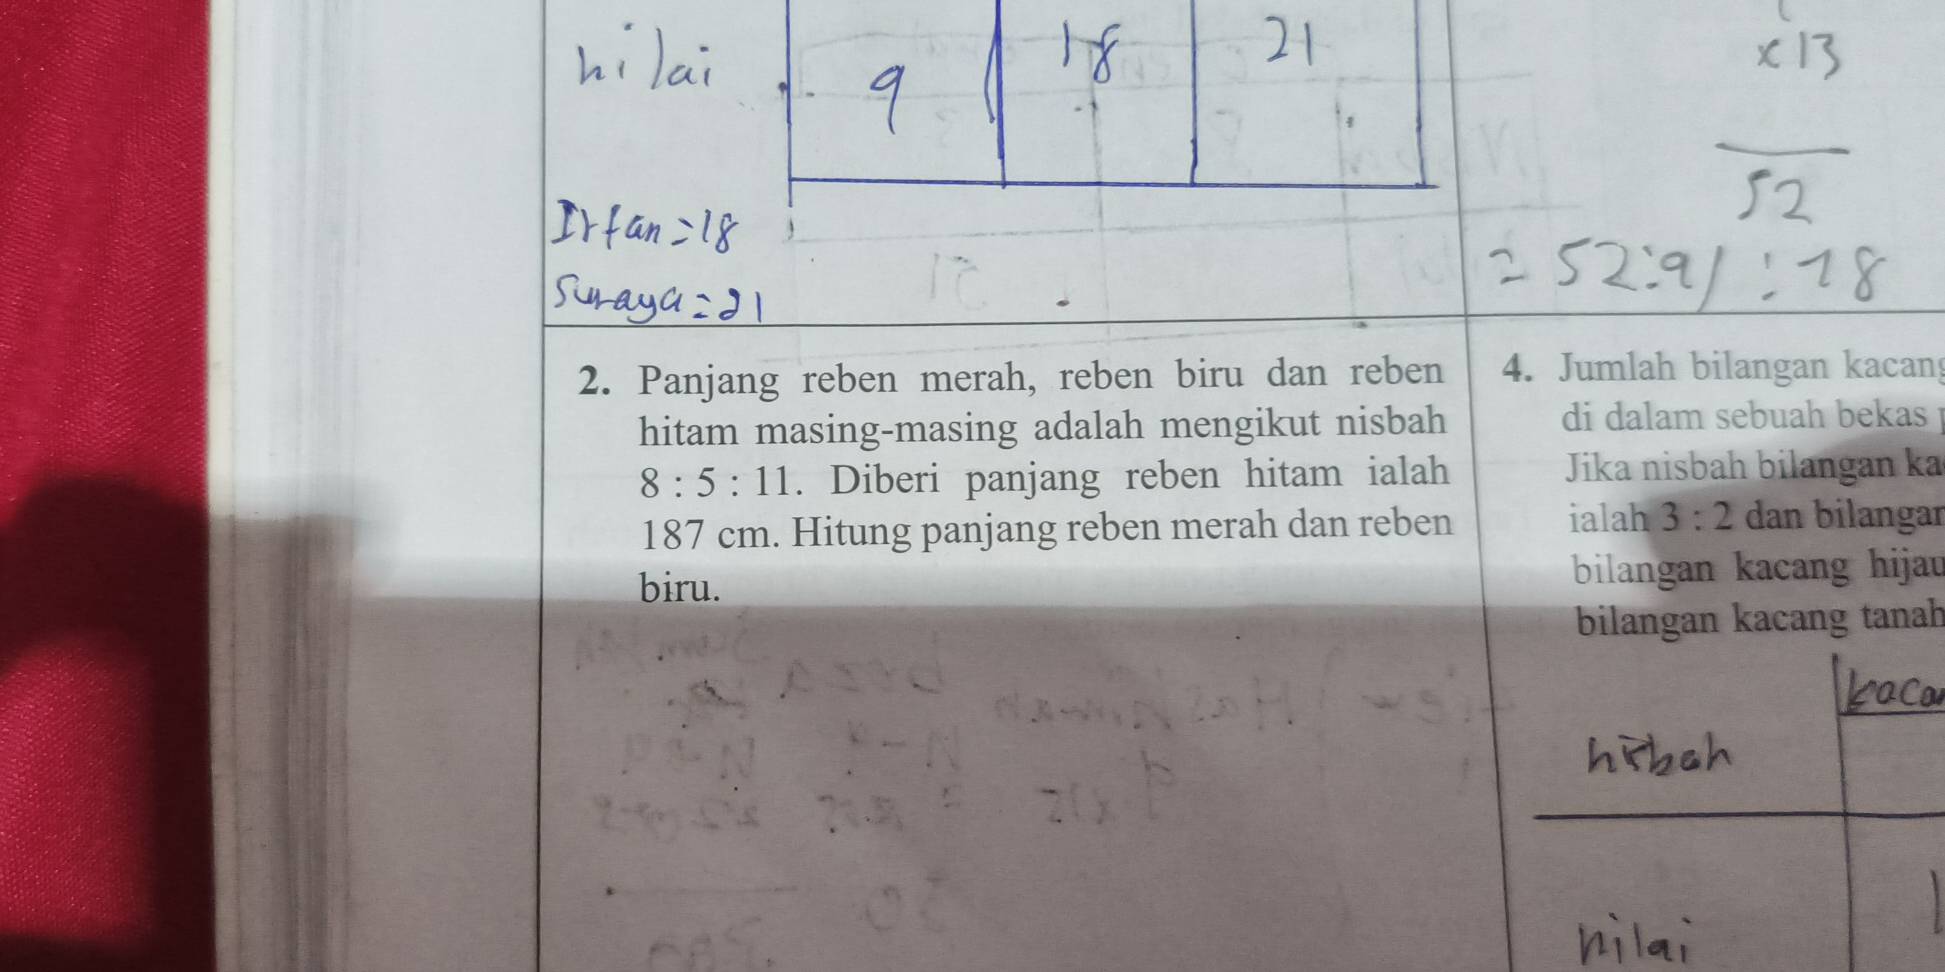 nilai 9 18 21
Irfan = 18
Suraya = 21
x 13
52
= 52 : 91 : 78
2. Panjang reben merah, reben biru dan reben
hitam masing-masing adalah mengikut nisbah
8 : 5 : 11. Diberi panjang reben hitam ialah
187 cm. Hitung panjang reben merah dan reben
biru.
4. Jumlah bilangan kacang
di dalam sebuah bekas
Jika nisbah bilangan ka
ialah 3 : 2 dan bilangan
bilangan kacang hijau
bilangan kacang tanah
kacan
nisbah
nilai